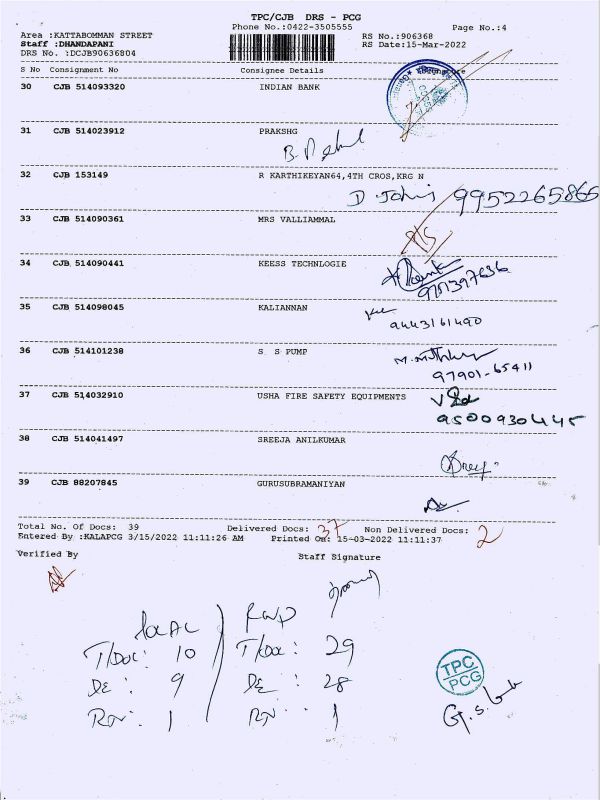 TPC/CJB DRS - PCG
Phone No.:0422-3505555 Page No.:4
Area :KATTABOMMAN STREET RS No.:906368
Staff :DHANDAPANI RS Date:15-Mar-2022
DRS No. :DCJB90636804
S No Consignment No Consignee Details
30 CJB 514093320 INDIAN BANK
31 CJB 514023912 PRAKSHG
32 CJB 153149 R KARTHIKEYAN64,4TH CROS,KRG N
D. John's 9952265865
33 CJB 514090361 MRS VALLIAMMAL
34 CJB 514090441 KEESS TECHNLOGIE
9751397636
35 CJB 514098045 KALIANNAN
9443161490
36 CJB 514101238 S. S PUMP
97901-65411
37 CJB 514032910 USHA FIRE SAFETY EQUIPMENTS
9500930445
38 CJB 514041497 SREEJA ANILKUMAR
39 CJB 88207845 GURUSUBRAMANIYAN
Total No. Of Docs: 39 Delivered Docs: 37 Non Delivered Docs: 2
Entered By :KALAPCG 3/15/2022 11:11:26 AM Printed On: 15-03-2022 11:11:37
Verified By Staff Signature
T/Doc: 10 T/Doc: 29
DE: 9 DE: 28
RTN: 1 RTN: 1
TPC
PCG